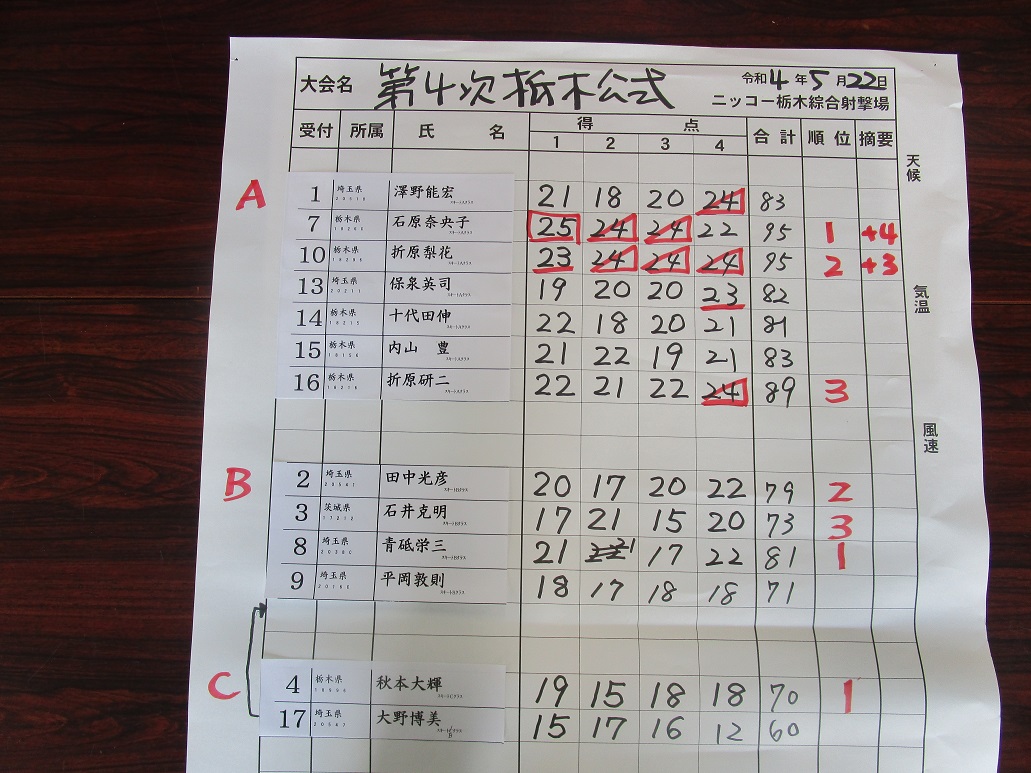 大会名 第4次栃木公式 令和4年5月22日
ニッコー栃木綜合射撃場
受付 所属 氏名 得点 合計 順位 摘要
1 2 3 4
天候
A
1 埼玉県 澤野能宏 21 18 20 24 83
7 栃木県 石原奈央子 25 24 24 22 95 1 +4
10 栃木県 折原梨花 23 24 24 24 95 2 +3
13 埼玉県 保泉英司 19 20 20 23 82
気温
14 栃木県 十代田伸 22 18 20 21 81
15 栃木県 内山 豊 21 22 19 21 83
16 栃木県 折原研二 22 21 22 24 89 3
風速
B
2 埼玉県 田中光彦 20 17 20 22 79 2
3 茨城県 石井克明 17 21 15 20 73 3
8 埼玉県 青砥栄三 21 21 17 22 81 1
9 埼玉県 平岡敦則 18 17 18 18 71
C
4 栃木県 秋本大輝 19 15 18 18 70 1
17 埼玉県 大野博美 15 17 16 12 60